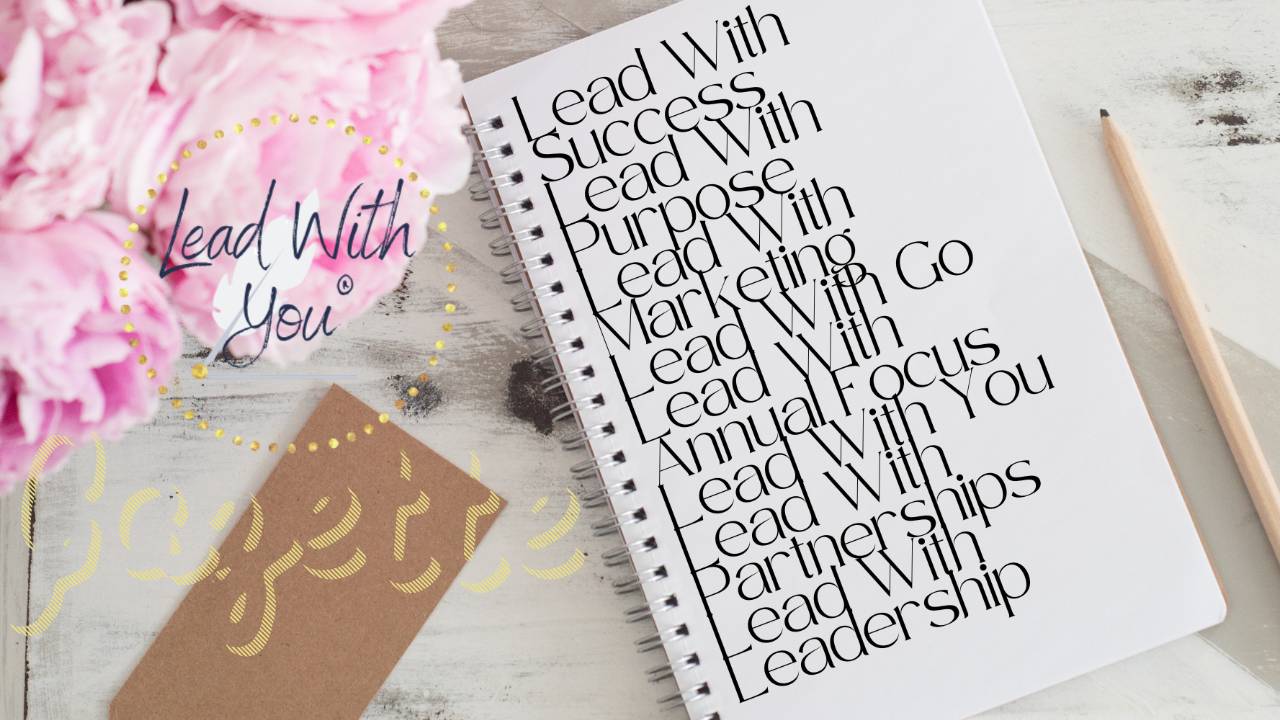 Lead With
You®
Lead With
Success
Lead With
Purpose
Lead With
Marketing
Lead With Go
Lead With
Annual Focus
Lead With You
Lead With
Partnerships
Lead With
Leadership